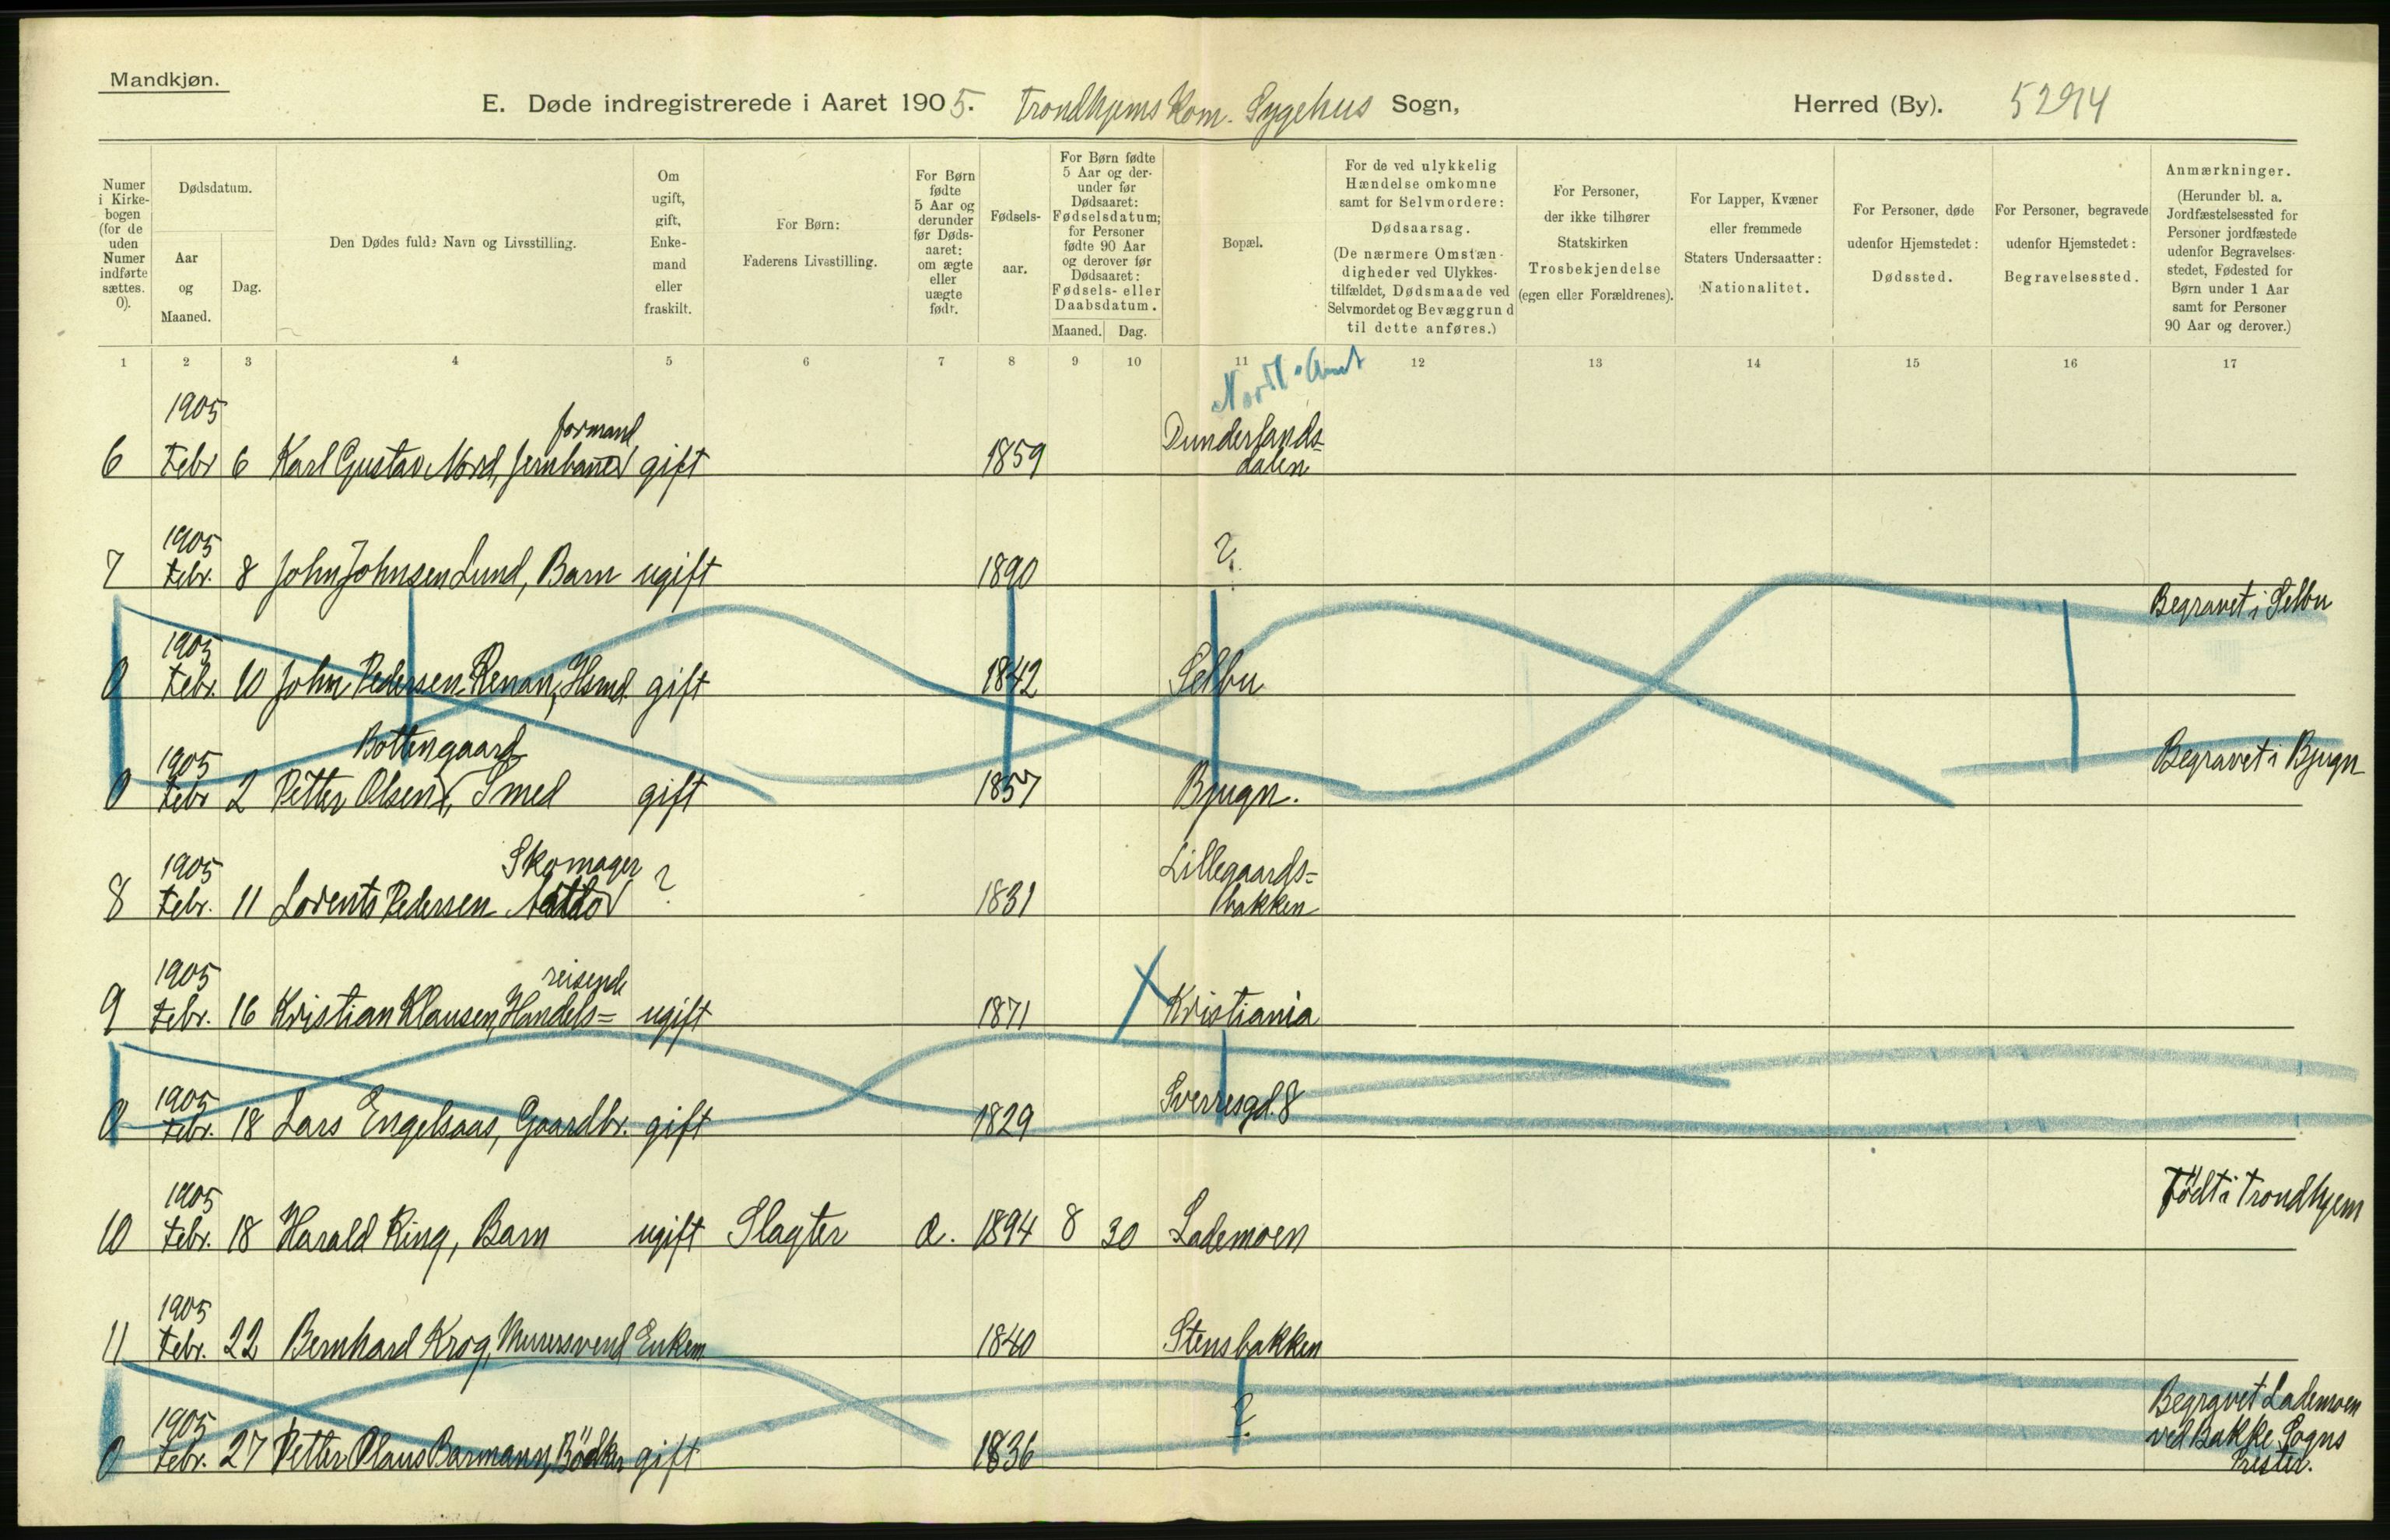 Mandkjøn.
E. Døde indregistrerede i Aaret 1905. Trondhjems Kom. Sygehus Sogn, Herred (By). 5294
Numer i Kirkebogen (for de uden Numer indførte sættes. 0).
Dødsdatum.
Aar og Maaned.
Dag.
Den Dødes fulde Navn og Livsstilling.
Om ugift, gift, Enkemand eller fraskilt.
For Børn: Faderens Livsstilling.
For Børn fødte 5 Aar og derunder før Dødsaaret: om ægte eller uægte født.
Fødselsaar.
For Børn fødte 5 Aar og derunder før Dødsaaret: Fødselsdatum; for Personer fødte 90 Aar og derover før Dødsaaret: Fødsels- eller Daabsdatum.
Maaned. Dag.
Bopæl.
For de ved ulykkelig Hændelse omkomne samt for Selvmordere: Dødsaarsag. (De nærmere Omstændigheder ved Ulykkestilfældet, Dødsmaade ved Selvmordet og Bevæggrund til dette anføres.)
For Personer, der ikke tilhører Statskirken Trosbekjendelse (egen eller Forældrenes).
For Lapper, Kvæner eller fremmede Staters Undersaatter: Nationalitet.
For Personer, døde udenfor Hjemstedet: Dødssted.
For Personer, begravede udenfor Hjemstedet: Begravelsessted.
Anmærkninger. (Herunder bl. a. Jordfæstelsessted for Personer jordfæstede udenfor Begravelsesstedet, Fødested for Børn under 1 Aar samt for Personer 90 Aar og derover.)
1 2 3 4 5 6 7 8 9 10 11 12 13 14 15 16 17
Nordl. Amt
1905 formand Dunderlands-
6 Febr 6 Karl Gustav Nord, Jernbane gift 1859 dalen
1905
7 Febr. 8 John Johnsen Lund, Barn ugift 1890 ?
Begravet i Selbu
1905
0 Febr. 10 John Pedersen Renan, Hsmd. gift 1842 Selbu
1905 Bottengaard Begravet i Bjugn
0 Febr 2 Petter Olsen, Smed gift 1857 Bjugn.
1905 Skomager Lillegaards=
8 Febr. 11 Lorents Pedersen ? 1831 bakken
1905 reisende
9 Febr. 16 Kristian Klausen, Handels= ugift 1871 Kristiania
1905
0 Febr. 18 Lars Engelsaas, Gaardbr. gift 1829 Sverresgd. 8
1905 Födt i Trondhjem
10 Febr. 18 Harald Ring, Barn ugift Slagter 1894 8 30 Lademoen
1905
11 Febr. 22 Bernhard Krog, Murersvend Enkem. 1840 Stensbakken
1905 Begravet Lademoen
0 Febr. 27 Petter Olaus Barmann, Bödker gift 1836 ? ved Bakke Sogns
Prester.